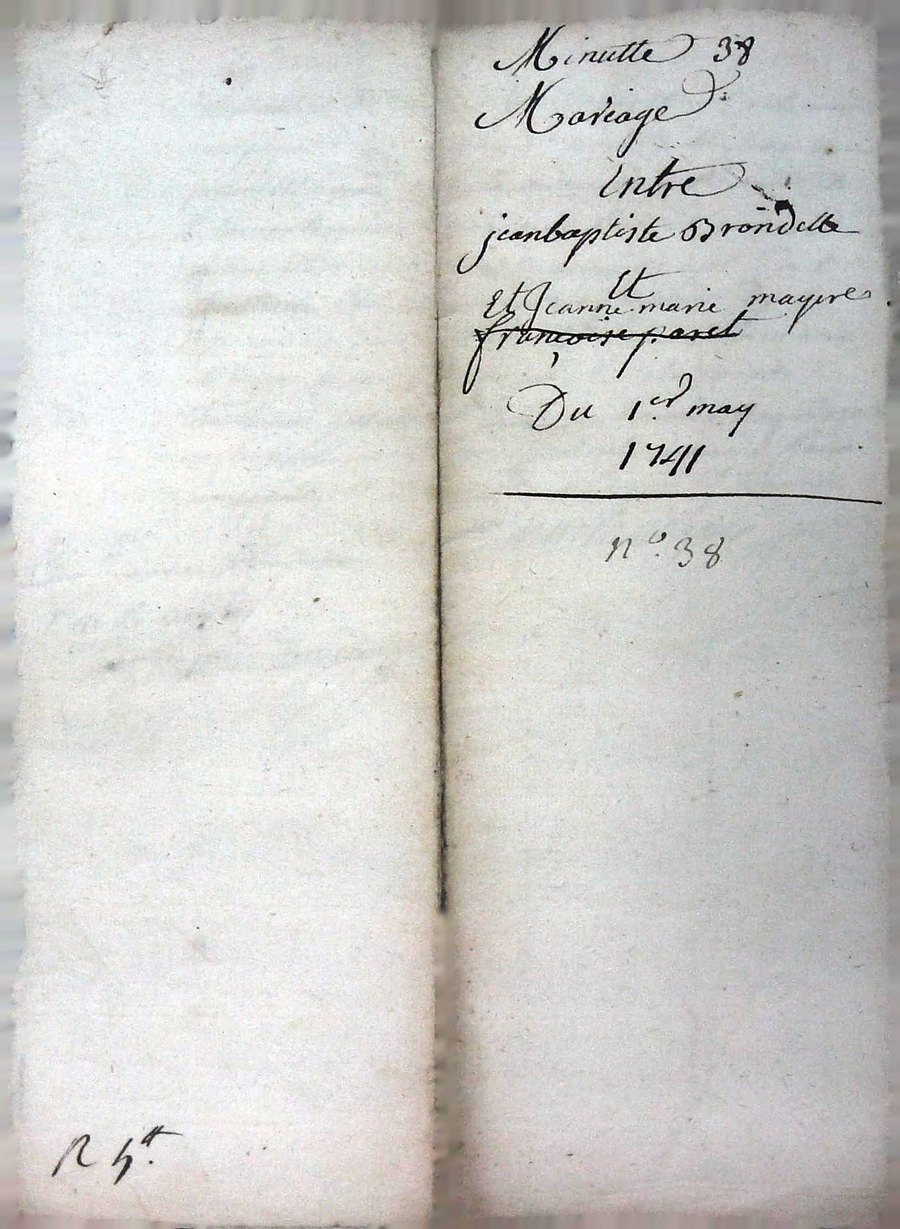 Minutte 38
Mariage
Entre
jeanbaptiste Brondelle
Et
Et Jeanne marie mayere
françoise paret
Du 1er may
1741
n° 38
R 5